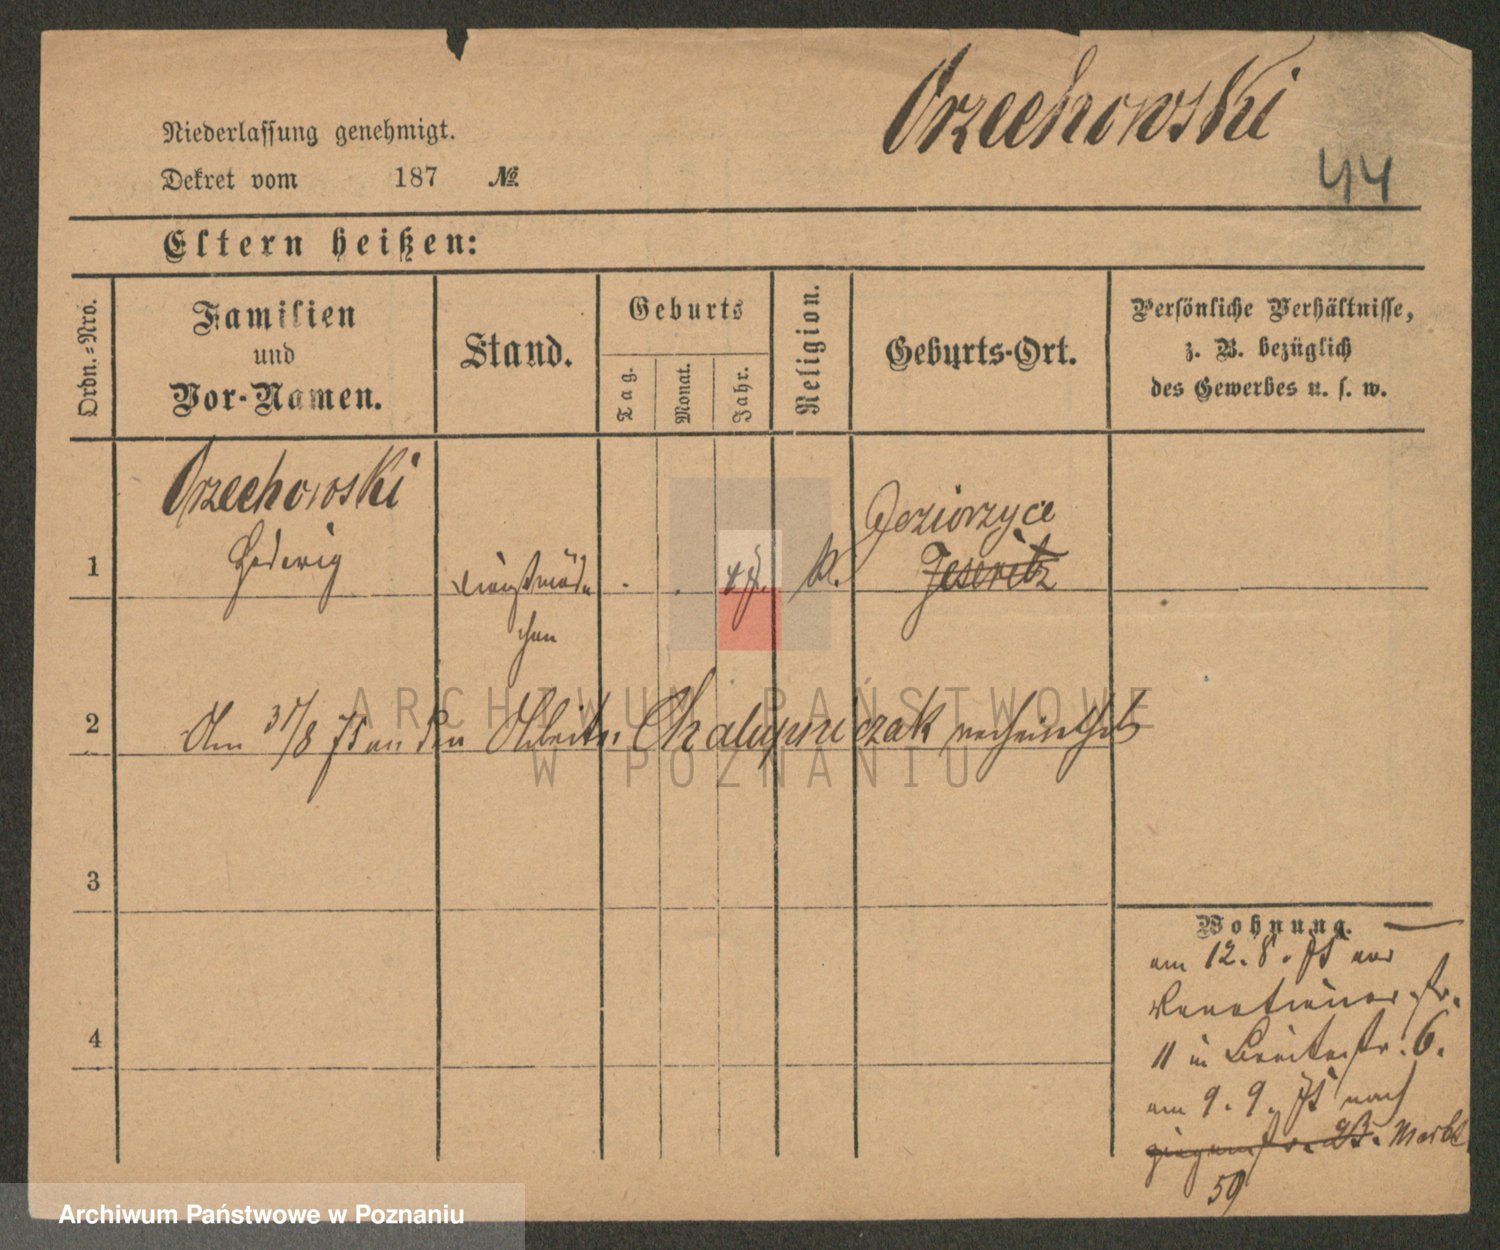 Orzechowski
44
Niederlassung genehmigt.
Dekret vom 187 №
Eltern heißen:
Ordn.-Nro.
Familien
und
Vor-Namen.
Stand.
Geburts
Tag.
Monat.
Jahr.
Religion.
Geburts-Ort.
Persönliche Verhältnisse,
z. B. bezüglich
des Gewerbes u. s. w.
Orzechowski
Hedwig
1
Dienstmäd
chen
K.
Jeziorzyce
Jeseritz
2
Am 31/8 75 an den Arbeiter Chalupniczak verheirathet
3
4
Wohnung.
am 12. 8. 75 von
Venetianer str.
11 in Breitestr. 6.
am 9. 9. 75 nach
Markt
59
ARCHIWUM PAŃSTWOWE
W POZNANIU
Archiwum Państwowe w Poznaniu